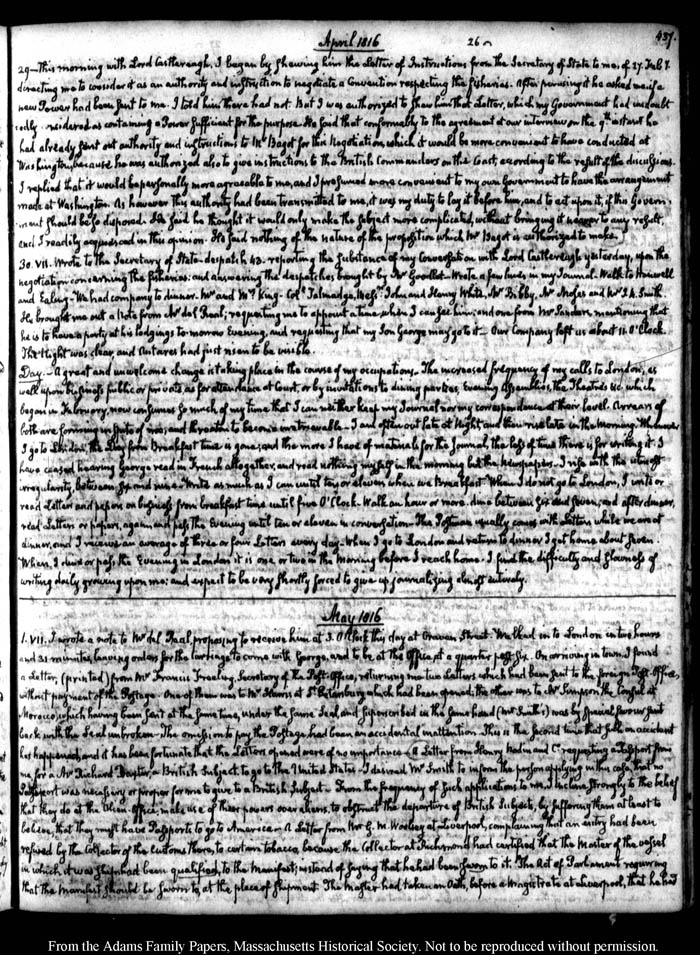 April 1816
26
437.
29— This morning with Lord Castlereagh, I began by shewing him the Letter of Instructions from the Secretary of State to me, of 27. Feb
directing me to consider it as an authority and instruction to negotiate a Convention respecting the fisheries. After perusing it he asked me if a
new Power had been sent to me. I told him there had not. But I was authorized to shew him that Letter, which my Government had undoubt
edly considered as containing a Power sufficient for the purpose. He said that conformably to the agreement at our interview on the 9th instant he
had already sent out authority and instructions to Mr Bagot for this Negotiation, which it would be more convenient to have conducted at
Washington, because he was authorized also to give instructions to the British Commanders on the Coast, according to the result of the discussions.
I replied that it would be personally more agreeable to me, and I presumed more convenient to my own Government to have the arrangement
made at Washington. As however this authority had been transmitted to me, it was my duty to lay it before him, and to act upon it, if this Govern-
ment should be so disposed. He said he thought it would only make the subject more complicated, without bringing it nearer to any result,
and I readily acquiesced in this opinion. He said nothing of the nature of the proposition which Mr Bagot is authorized to make.
30. VII. Wrote to the Secretary of State despatch 43. reporting the substance of my Conversation with Lord Castlereagh yesterday, upon the
negotiation concerning the fisheries: and answering the despatches brought by Mr Goodlet. Wrote a few lines in my Journal. Walk to Hanwell
and Ealing. We had company to dinner. Mr and Mrs King. Coll Talmadge, Messrs John and Henry White, Mr Bibby, Mr Moses and Mr J. A. Smith.
He brought me out a Note from Mr del Real, requesting me to appoint a time when I can see him; and one from Mr mentioning that
he is to have a party at his lodgings to-morrow Evening, and requesting that my Son George may go to it. Our Company left us about 11. O'Clock.
The Night was clear and Antares had just risen to be visible.
Day.— A great and unwelcome change is taking place in the course of my occupations. The increased frequency of my calls to London, as
well upon business public or private as for attendance at Court, or by invitations to dining parties, Evening Assemblies, the Theatres &c. which
began in February, now consumes so much of my time that I can neither keep my Journal nor my correspondence at their level. Arrears of
both are forming in spite of me, and threaten to become irretrievable. I am often out late at Night and then rise late in the Morning. Whenever
I go to London, the Day from Breakfast time is gone; and the more I have of materials for the Journal, the less of time there is for writing it. I
have ceased hearing George read in French altogether, and read nothing myself in the morning but the Newspapers. I rise with the utmost
irregularity, between six and nine. Write as much as I can until ten or eleven when we Breakfast. When I do not go to London, I write or
read Letters and papers on business from breakfast time until five O'Clock. Walk an hour or more. dine between six and seven, and after dinner,
read Letters or papers, again and pass the Evening until ten or eleven in conversation. The Postman usually comes with Letters while we are at
dinner, and I receive an average of three or four Letters every day. When I go to London and return to dinner I get home about seven.
When I dine or pass the Evening in London it is one or two in the Morning before I reach home. I find the difficulty and slowness of
writing daily growing upon me; and expect to be very shortly forced to give up journalizing almost entirely.
May 1816
1. VII. I wrote a note to Mr del Real, proposing to receive him at 3. O'Clock this day at Craven Street. Walked in to London in two hours
and 31 minutes, leaving orders for the Carriage to come with George, and to be at the Office at a quarter past six. On arriving in town I found
a Letter, (printed) from Mr Francis Freeling, Secretary of the Post-Office, returning me two Letters which had been sent to the foreign Post-Office,
without payment of the Postage. One of them was to Mr Harris at St Petersburg which had been opened; the other was to Mr Simpson the Consul at
Morocco, which having been sent at the same time, under the same Seal, and superscribed in the same hand (Mr Smith's) was by special favour sent
back with the Seal unbroken. The omission to pay the Postage had been an accidental inattention. This is the second time that such an accident
has happened, and it has been fortunate that the Letters opened were of no importance. A Letter from Henry and Co requesting a Passport from
me for a Mr Richard Baxter, a British Subject to go to the United States. I desired Mr Smith to inform the person applying in this case, that no
Passport was necessary or proper for me to give to a British Subject. From the frequency of such applications to me, I incline strongly to the belief
that they do at the Alien Office, make use of their powers over aliens, to obstruct the departure of British Subjects, by suffering them at least to
believe, that they must have Passports to go to America. A Letter from Mr G. M. Woolsey at Liverpool, complaining that an entry had been
refused by the Collector of the Customs there, to certain tobacco, because the Collector at Richmond had certified that the Master of the vessel
in which it was shipped had been qualified, to the Manifest; instead of saying that he had been sworn to it. The Act of Parliament requiring
that the Manifest should be sworn to, at the place of shipment. The Master had taken an Oath, before a Magistrate at Liverpool, that he had
From the Adams Family Papers, Massachusetts Historical Society. Not to be reproduced without permission.